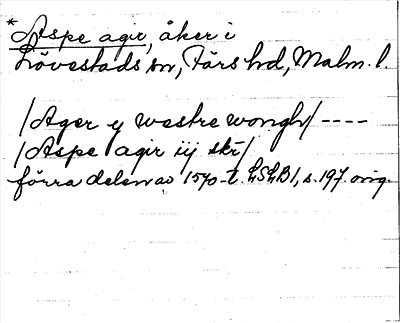 *Aspe agir, åker i
Lövestads sn, Färs hd, Malm. l.
/Ager y westre wongh/ ----
/Aspe agir iij skr/
förra delen av 1570-t. LSLB1, s. 197. orig.